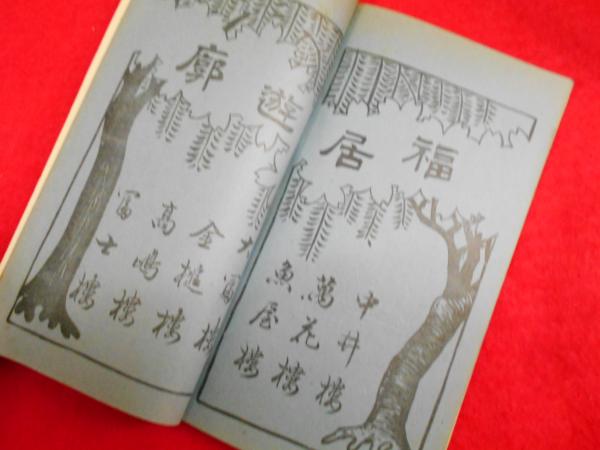 福居
遊廓
中井楼
萬花楼
魚屋楼
金槌楼
高嶋楼
冨士楼